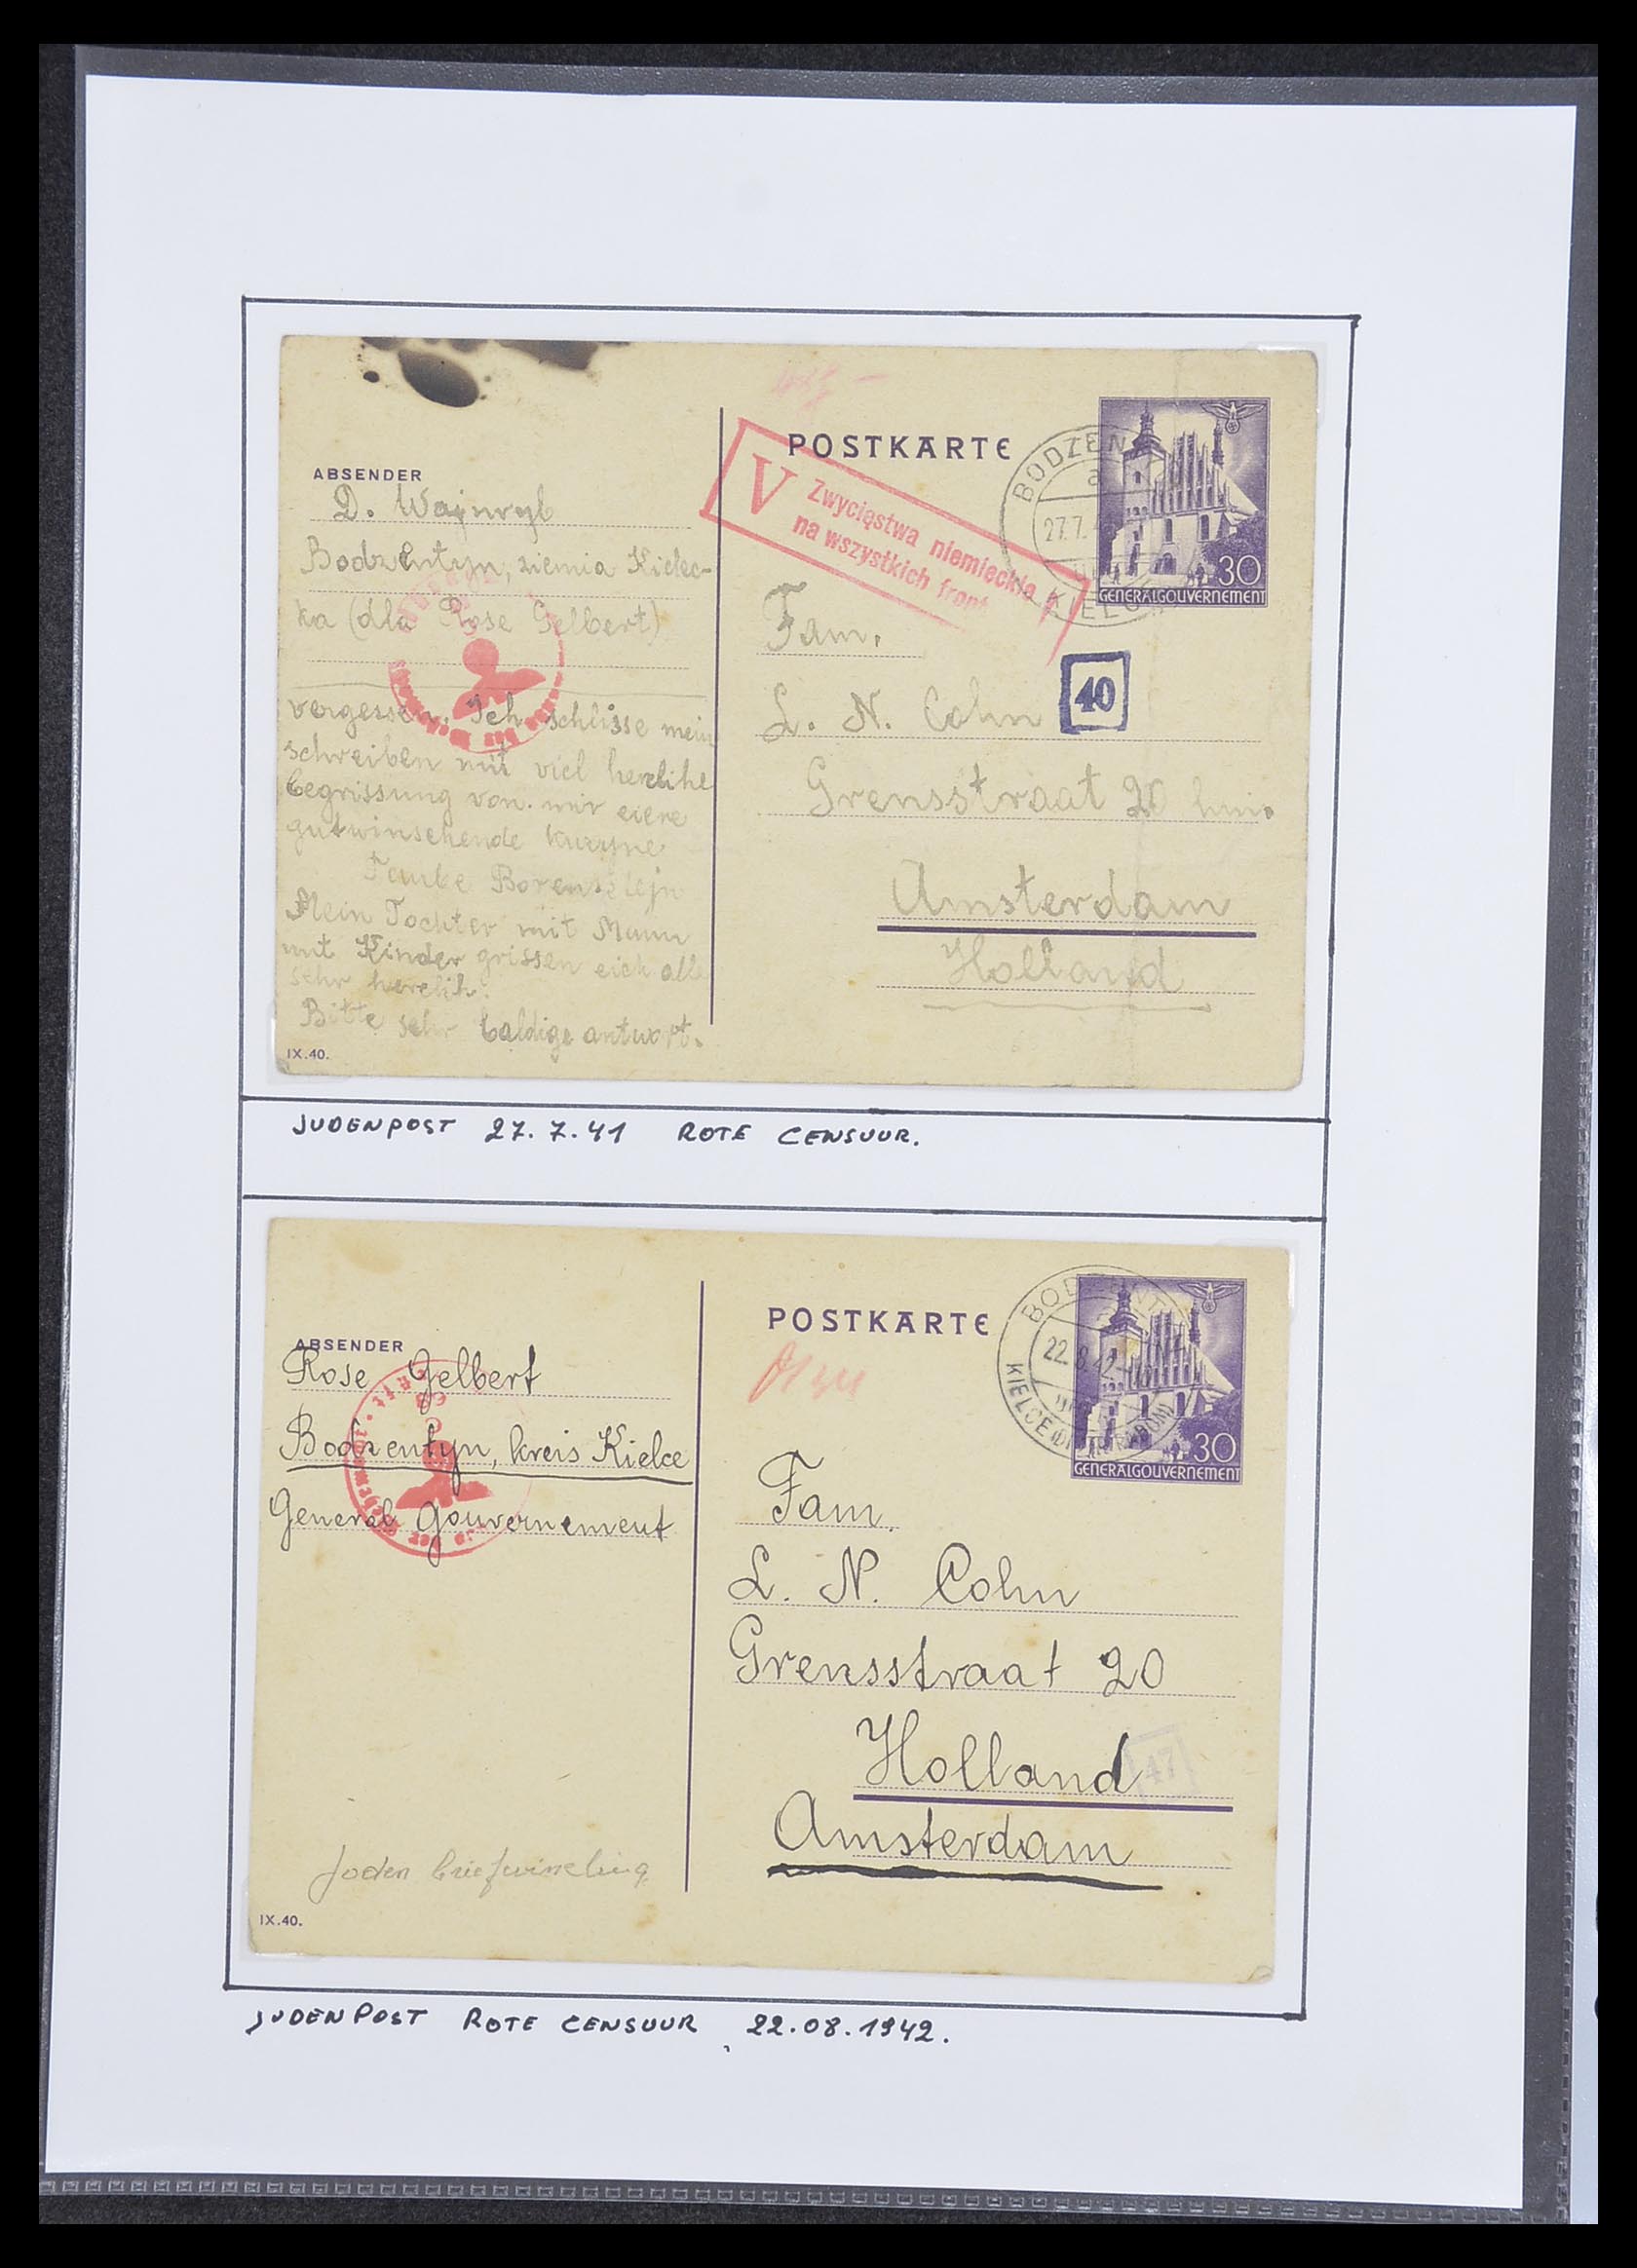 POSTKARTE
ABSENDER
D. Wajnryb
Bodzentyn, ziemia Kielec-
ka (dla Rose Gelbert)
vergessen. Ich schlisse mein
schreiben mit viel herzlihe
begrissung von mir eiere
gutwinschende kuzyne
Taube Borensztejn
Mein Tochter mit Mann
mit Kinder grissen eich alle
sehr herclih.
Bitte sehr baldige antwort.
IX.40.
V Zwycięstwa niemieckie
na wszystkich front
BODZEN
a
27.7.
KIELC
30
GENERALGOUVERNEMENT
Fam.
L. N. Cohn
40
Grensstraat 20
Amsterdam
Holland
JUDENPOST 27.7.41 ROTE CENSUUR.
POSTKARTE
ABSENDER
Rose Gelbert
Bodzentyn, kreis Kielce
General Gouvernement
22.8.42
KIELCE
30
GENERALGOUVERNEMENT
Fam.
L. N. Cohn
Grensstraat 20
Holland
47
Amsterdam
Joden
IX.40.
JUDENPOST ROTE CENSUUR 22.08.1942.